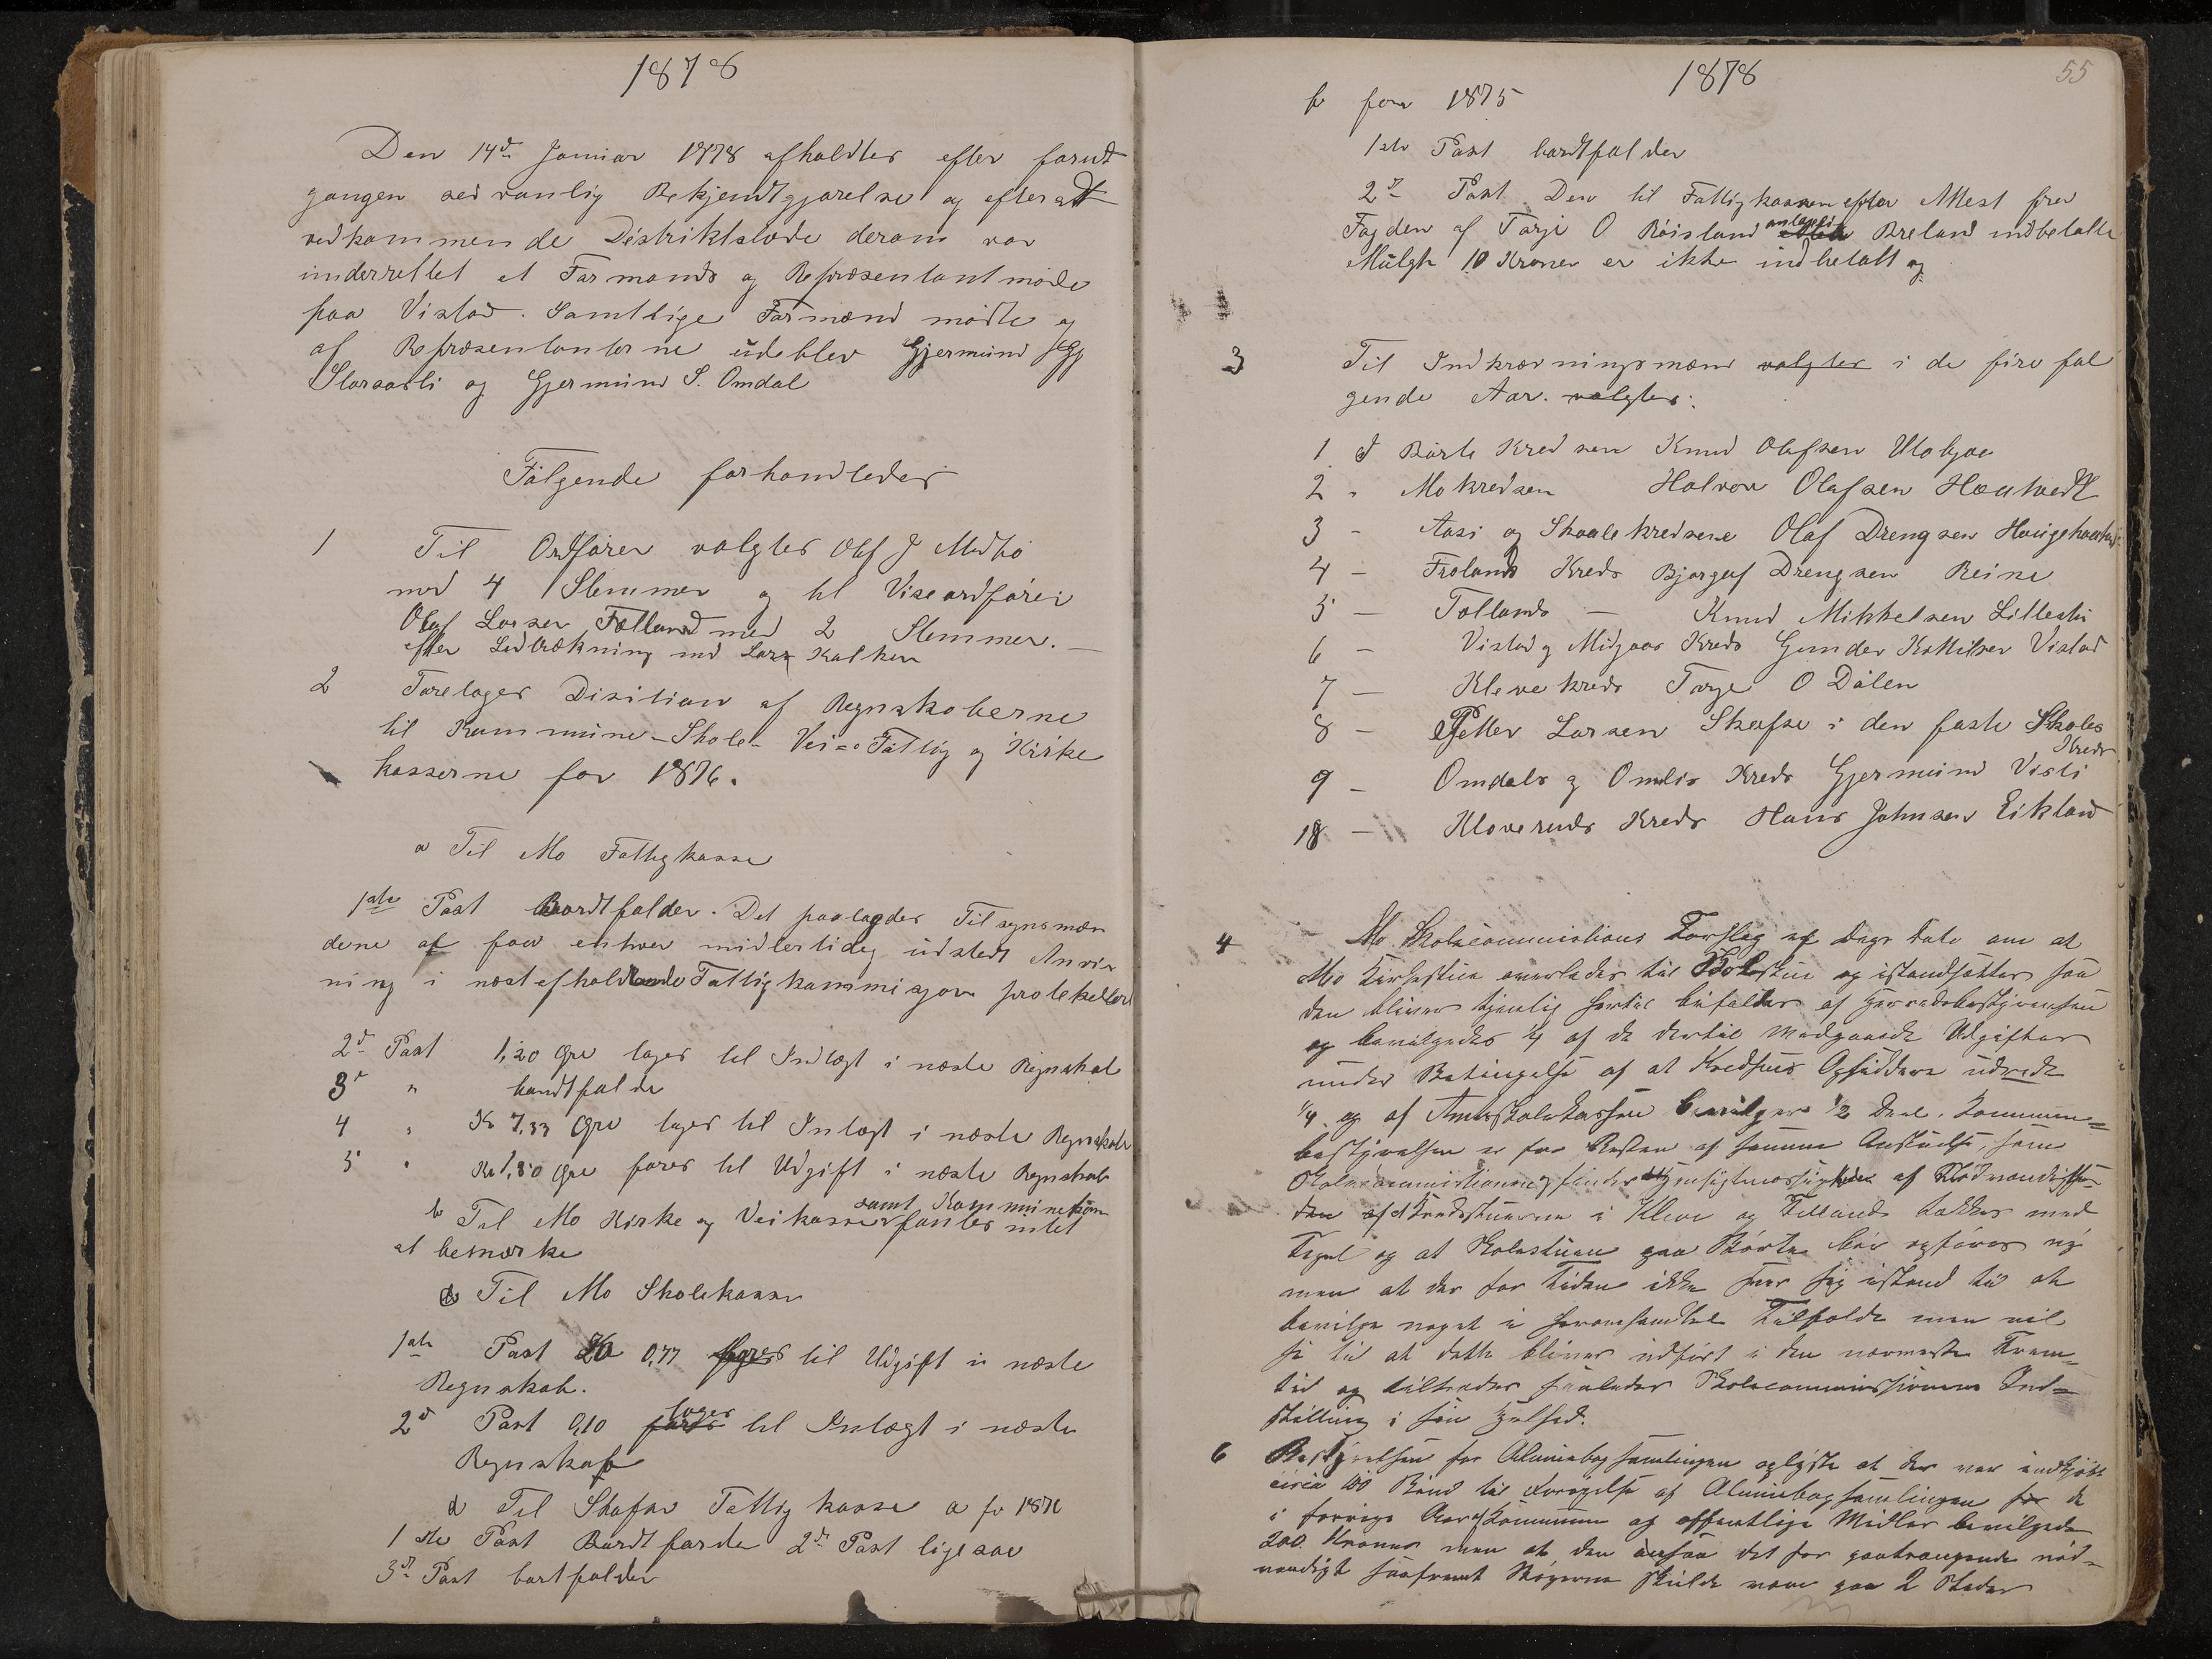 1878
Den 14de Januar 1878 afholdtes efter forud
gangen sedvanlig Bekjendtgjørelse og efterat
vedkommende Distriktslæde derom var
underrettet et Formands og Repræsentantmøde
paa Vistad. Samtlige Formænd mødte og
af Repræsentanterne udeblev Gjermund
Storaasli og Gjermund S. Omdal
Følgende forhandledes
1 Til Ordfører valgtes Olaf J Midbø
med 4 Stemmer og til Viseordfører
Olaf Larsen Fælland med 2 Stemmer. —
efter Lodtrækning med Lars Kalken
2 Foretages Disition af Regnskaberne
til Kommune- Skole- Vei- Fattig og Kirke
kasserne for 1876.
a Til Mo Fattigkasse
1ste Post Bortfalder. Det paalægdes Tilsynsmæn
dene af faa enhver midlertidig udstedt Anvis
ning i næst afholdende Fattigkommisjon protokolleret
2d Post 1,20 Øre tages til Indtægt i næste Regnskab
3d " bortfalde
4 " Kr 7,33 Øre tages til Intægt i næste Regnskab
5 " Kr 1,80 Øre føres til Udgift i næste Regnskab
samt Kommunekas
b Til Mo Kirke og Veikasser fantes intet
at bemærke
c Til Mo Skolekasse
1ste Post Kr 0,77 føres til Udgift i næste
Regnskab.
tages
2d Post 0,10 føres til Intægt i næste
Regnskab
d Til Skafse Fattigkasse a for 1876
1ste Post Bortfalde 2d Post ligesaa
3d Post bortfalder
1878
55
b for 1875
1ste Post bortfalder
2d Post Den til Fattigkassen efter Attest fra
Fogden af Tarje O. Røisland Breland indbetalte
Mulgt 10 Kroner er ikke indbetalt og
3 Til Indkrævningsmænd valgtes i de fire føl
gende Aar. valgtes:
1 I Børte Kredsen Knud Olafsen Utabjaa
2 " Mokredsen Halvor Olafsen Hautvedt
3 - Aasi og Skaalekredsene Olaf Drengsen Haugehaatvedt
4 - Frolands Kreds Bjørguf Drengsen Reine
5 — Fællands — Knud Mikkelsen Lillestu
6 — Vistad og Midgaas Kreds Gunder Kittilsen Vistad
7 — Klevekreds Tarje O Dalen
8 — Petter Larsen Skafse i den faste Skoles
Kreds
9 — Omdals og Omlis Kreds Gjermund Visli
10 — Kloveruds Kreds Hans Johnsen Eikland
4 Mo Skolecommistions Forslag af Dags Dato om at
Mo Kirkestue overlades til Skolestue og istandsættes saa
den bliver tjenlig hertil bifaldes af Herredsbestyrelsen
og bevilgedes 1/4 af de dertil medgaaede Udgifter
under Betingelse af at Kredsens Opsiddere udrede
1/4 og af Amtsskolekassen bevilges 1/2 Deel. Kommune=
bestyrelsen er for Resten af samme Anskuelse, som
Skolecommistionen af Nødvendighe
den af at Kredsstuerne i Kleve og Felland takkes med
Tegel og at Skolestuen paa Børte bør opføres ny
men at den for Tiden ikke seer sig istand til at
bevilge noget i heromhandlede Tilfælde men vil
se til at dette bliver udført i den nærmeste Frem=
tid og tiltrædes saaledes Skolecommissionens Ind=
stilling i sin Helhed.
6 Bestyrelsen for Almuebogsamlingen oplyste at der var indkjøbt
circa 100 Bind til Forøgelse af Almuebogsamlingen for de
i forrige Aar af Kommunen og offentlige Midler bevilgede
200 Kroner men at den ansaa det for paatrængende nød-
vendigt saafremt Bøgerne skulde være paa 2 Steder